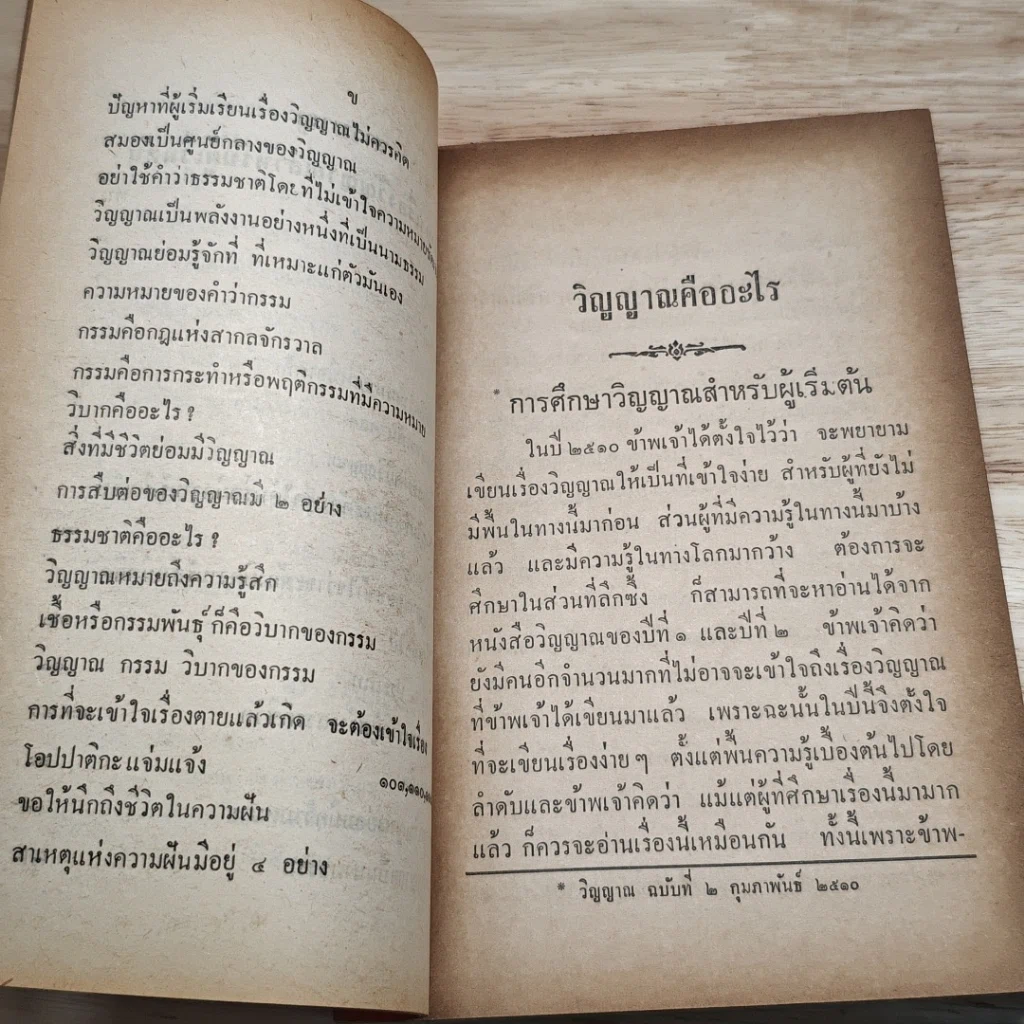 ข
ปัญหาที่ผู้เริ่มเรียนเรื่องวิญญาณไม่ควรคิด
สมองเป็นศูนย์กลางของวิญญาณ
อย่าใช้คำว่าธรรมชาติโดยที่ไม่เข้าใจความหมาย
วิญญาณเป็นพลังงานอย่างหนึ่งที่เป็นนามธรรม
วิญญาณย่อมรู้จักที่ ที่เหมาะแก่ตัวมันเอง
ความหมายของคำว่ากรรม
กรรมคือกฎแห่งสากลจักรวาล
กรรมคือการกระทำหรือพฤติกรรมที่มีความหมาย
วิบากคืออะไร ?
สิ่งที่มีชีวิตย่อมมีวิญญาณ
การสืบต่อของวิญญาณมี ๒ อย่าง
ธรรมชาติคืออะไร ?
วิญญาณหมายถึงความรู้สึก
เชื้อหรือกรรมพันธุ์ ก็คือวิบากของกรรม
วิญญาณ กรรม วิบากของกรรม
การที่จะเข้าใจเรื่องตายแล้วเกิด จะต้องเข้าใจเรื่อง
โอปปาติกะแจ่มแจ้ง ๑๐๑,๑๑๐,
ขอให้นึกถึงชีวิตในความฝัน
สาเหตุแห่งความฝันมีอยู่ ๔ อย่าง
วิญญาณคืออะไร
* การศึกษาวิญญาณสำหรับผู้เริ่มต้น
ในปี ๒๕๑๐ ข้าพเจ้าได้ตั้งใจไว้ว่า จะพยายาม
เขียนเรื่องวิญญาณให้เป็นที่เข้าใจง่าย สำหรับผู้ที่ยังไม่
มีพื้นในทางนี้มาก่อน ส่วนผู้ที่มีความรู้ในทางนี้มาบ้าง
แล้ว และมีความรู้ในทางโลกมากว้าง ต้องการจะ
ศึกษาในส่วนที่ลึกซึ้ง ก็สามารถที่จะหาอ่านได้จาก
หนังสือวิญญาณของปีที่ ๑ และปีที่ ๒ ข้าพเจ้าคิดว่า
ยังมีคนอีกจำนวนมากที่ไม่อาจจะเข้าใจถึงเรื่องวิญญาณ
ที่ข้าพเจ้าได้เขียนมาแล้ว เพราะฉะนั้นในปีนี้จึงตั้งใจ
ที่จะเขียนเรื่องง่าย ๆ ตั้งแต่พื้นความรู้เบื้องต้นไปโดย
ลำดับและข้าพเจ้าคิดว่า แม้แต่ผู้ที่ศึกษาเรื่องนี้มามาก
แล้ว ก็ควรจะอ่านเรื่องนี้เหมือนกัน ทั้งนี้เพราะข้าพ-
* วิญญาณ ฉบับที่ ๒ กุมภาพันธ์ ๒๕๑๐